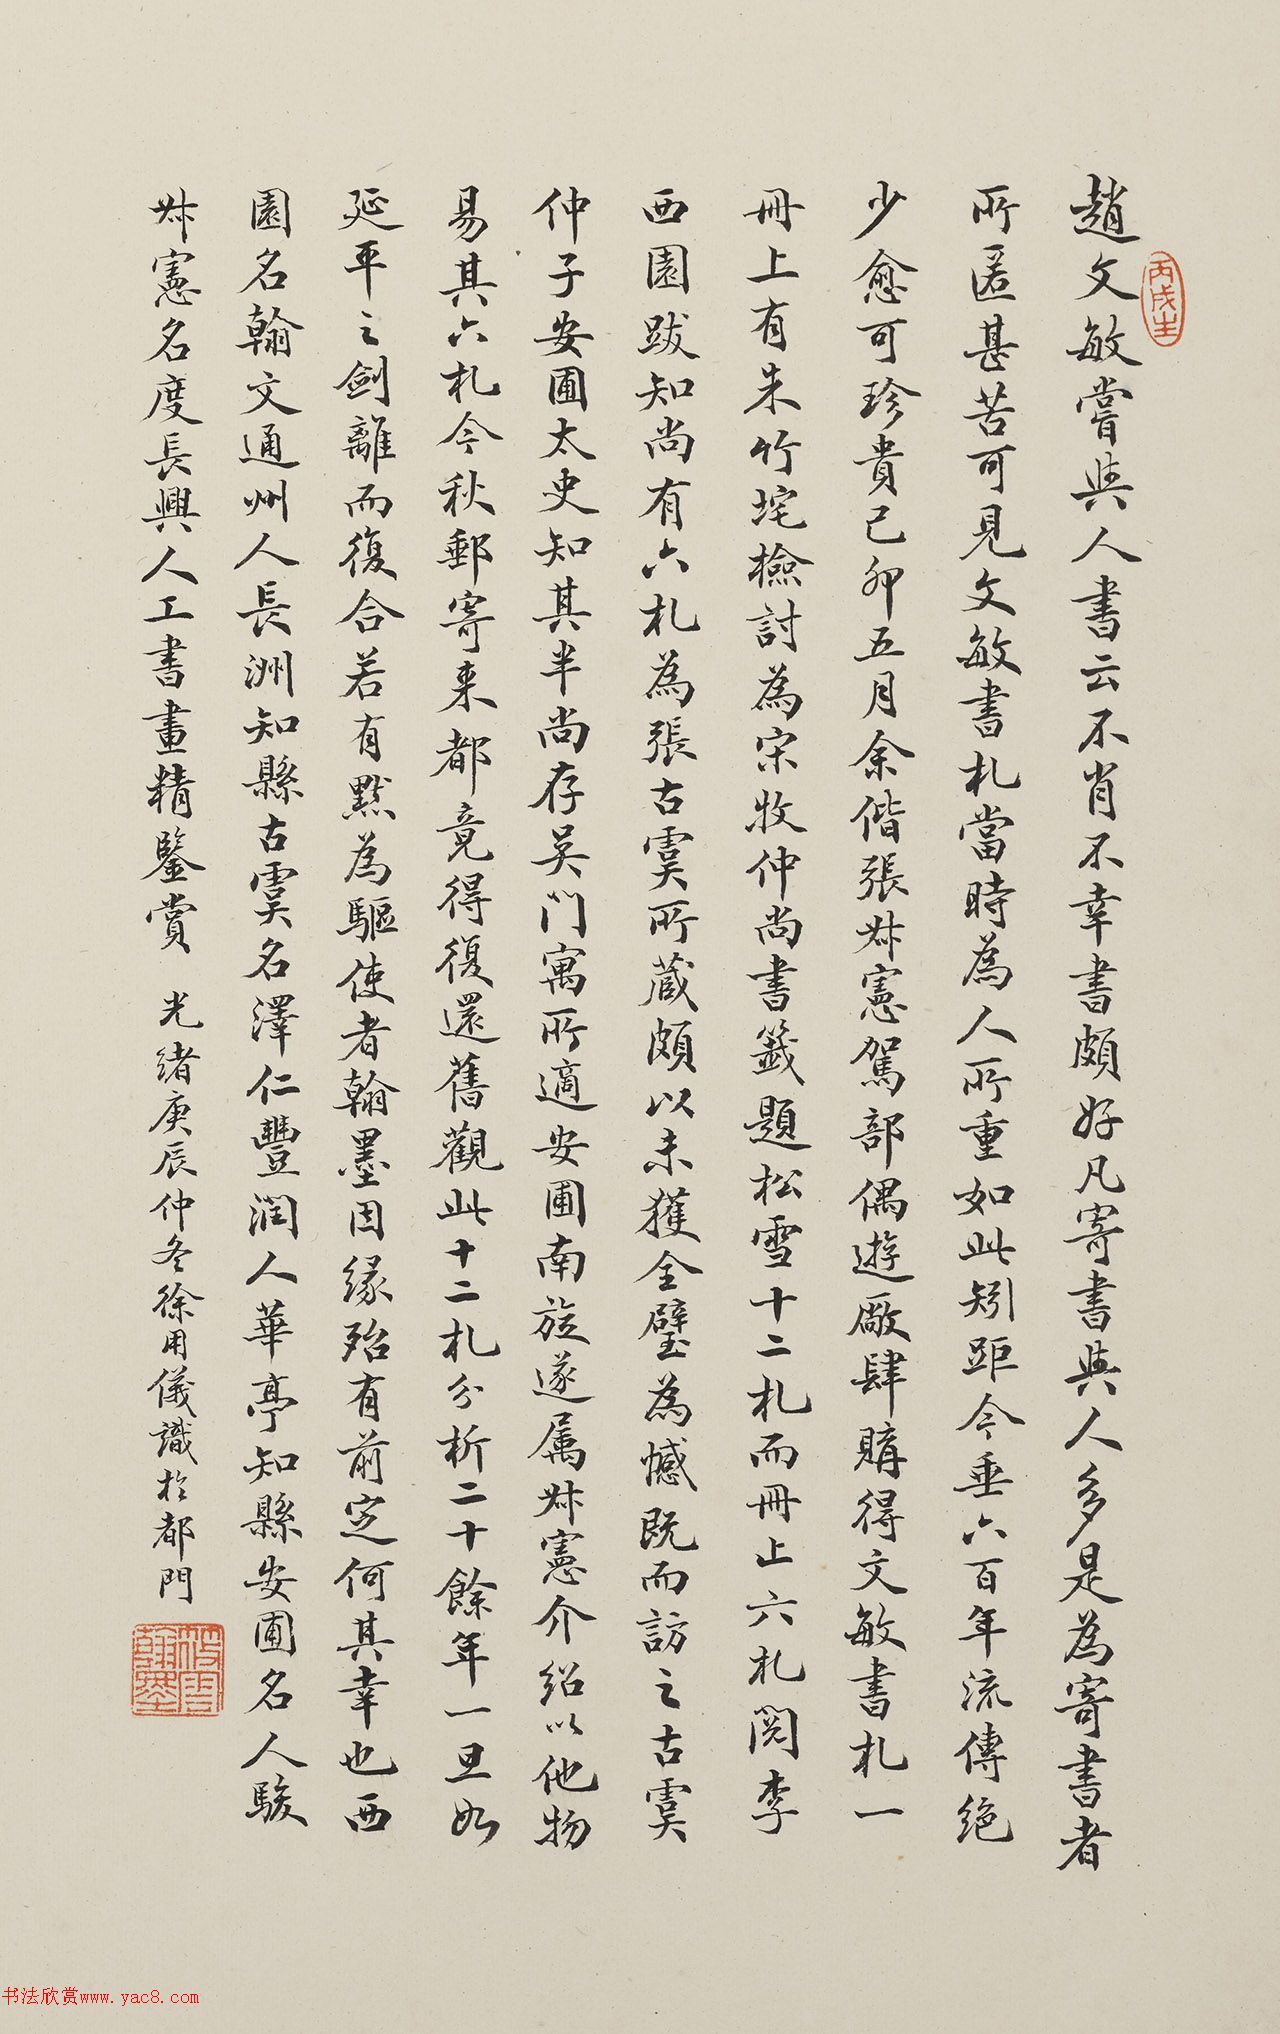 趙文敏嘗與人書云不肖不幸書頗好凡寄書與人多是為寄書者
所匿甚苦可見文敏書札當時為人所重如此矧距今垂六百年流傳絕
少愈可珍貴己卯五月余偕張叔憲駕部偶遊廠肆購得文敏書札一
冊上有朱竹垞檢討為宋牧仲尚書籤題松雪十二札而冊止六札閱李
西園跋知尚有六札為張古虞所藏頗以未獲全璧為憾既而訪之古虞
仲子安圃太史知其半尚存吳門寓所適安圃南旋遂属叔憲介紹以他物
易其六札今秋郵寄来都竟得復還舊觀此十二札分析二十餘年一旦如
延平之劍離而復合若有默為驅使者翰墨因緣殆有前定何其幸也西
園名翰文通州人長洲知縣古虞名澤仁豐潤人華亭知縣安圃名人駿
叔憲名度長興人工書畫精鑒賞 光緒庚辰仲冬徐用儀識於都門
丙戌生
筱雲翰墨
书法欣赏www.yac8.com